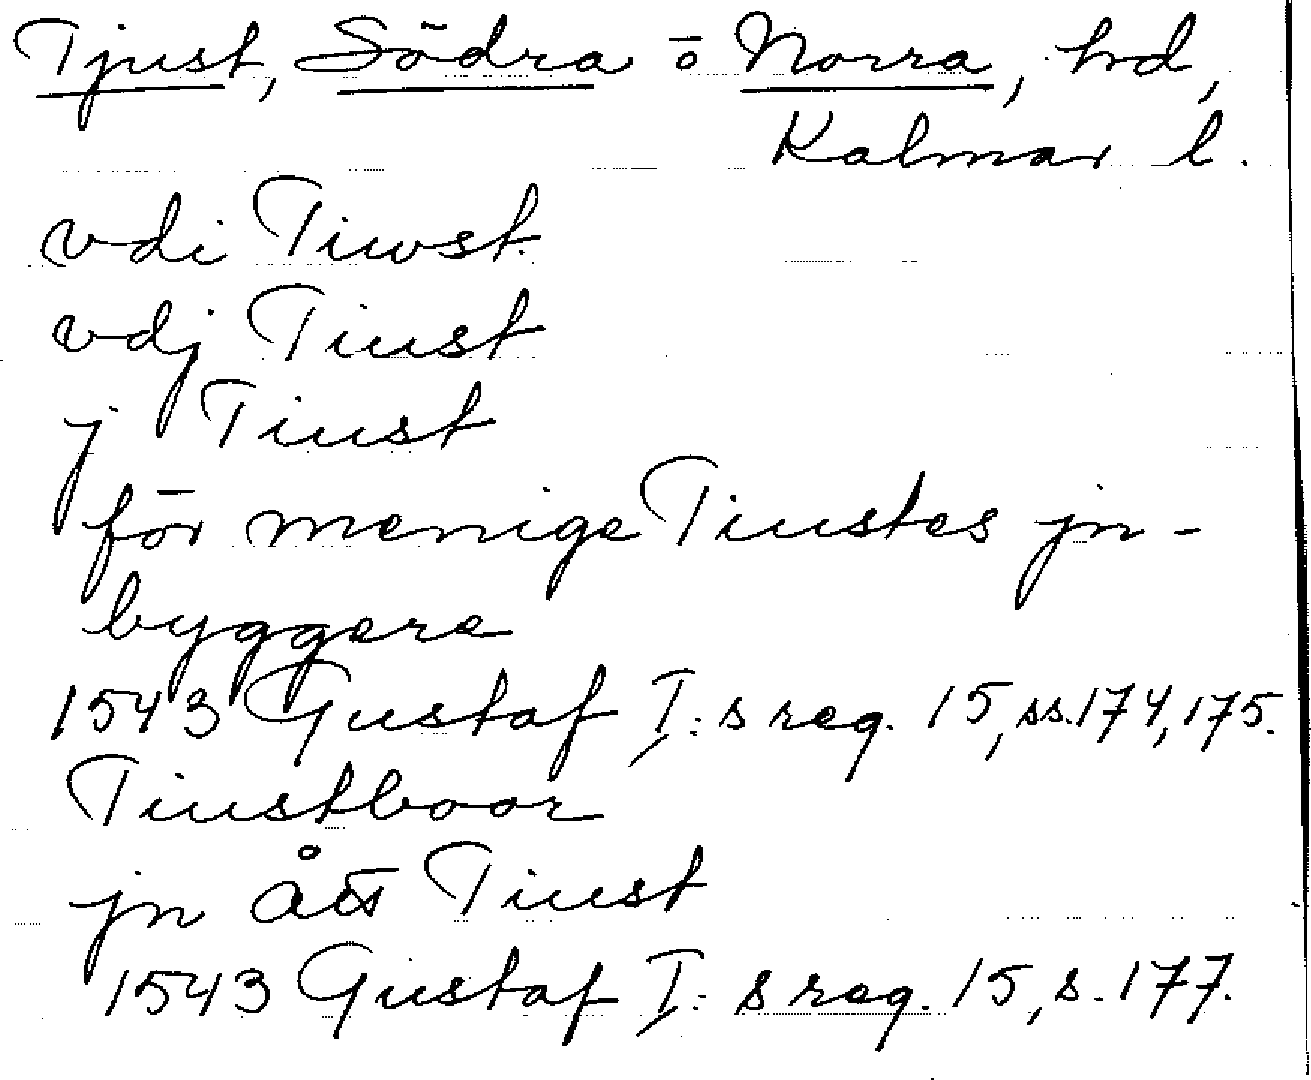 Tjust, Södra o Norra, hd,
Kalmar l.
vdi Tiwst
vdj Tiust
j Tiust
för menige Tiustes jn-
byggere
1543 Gustaf I:s reg. 15, ss. 174, 175.
Tiustboor
jn ått Tiust
1543 Gustaf I:s reg. 15, s. 177.